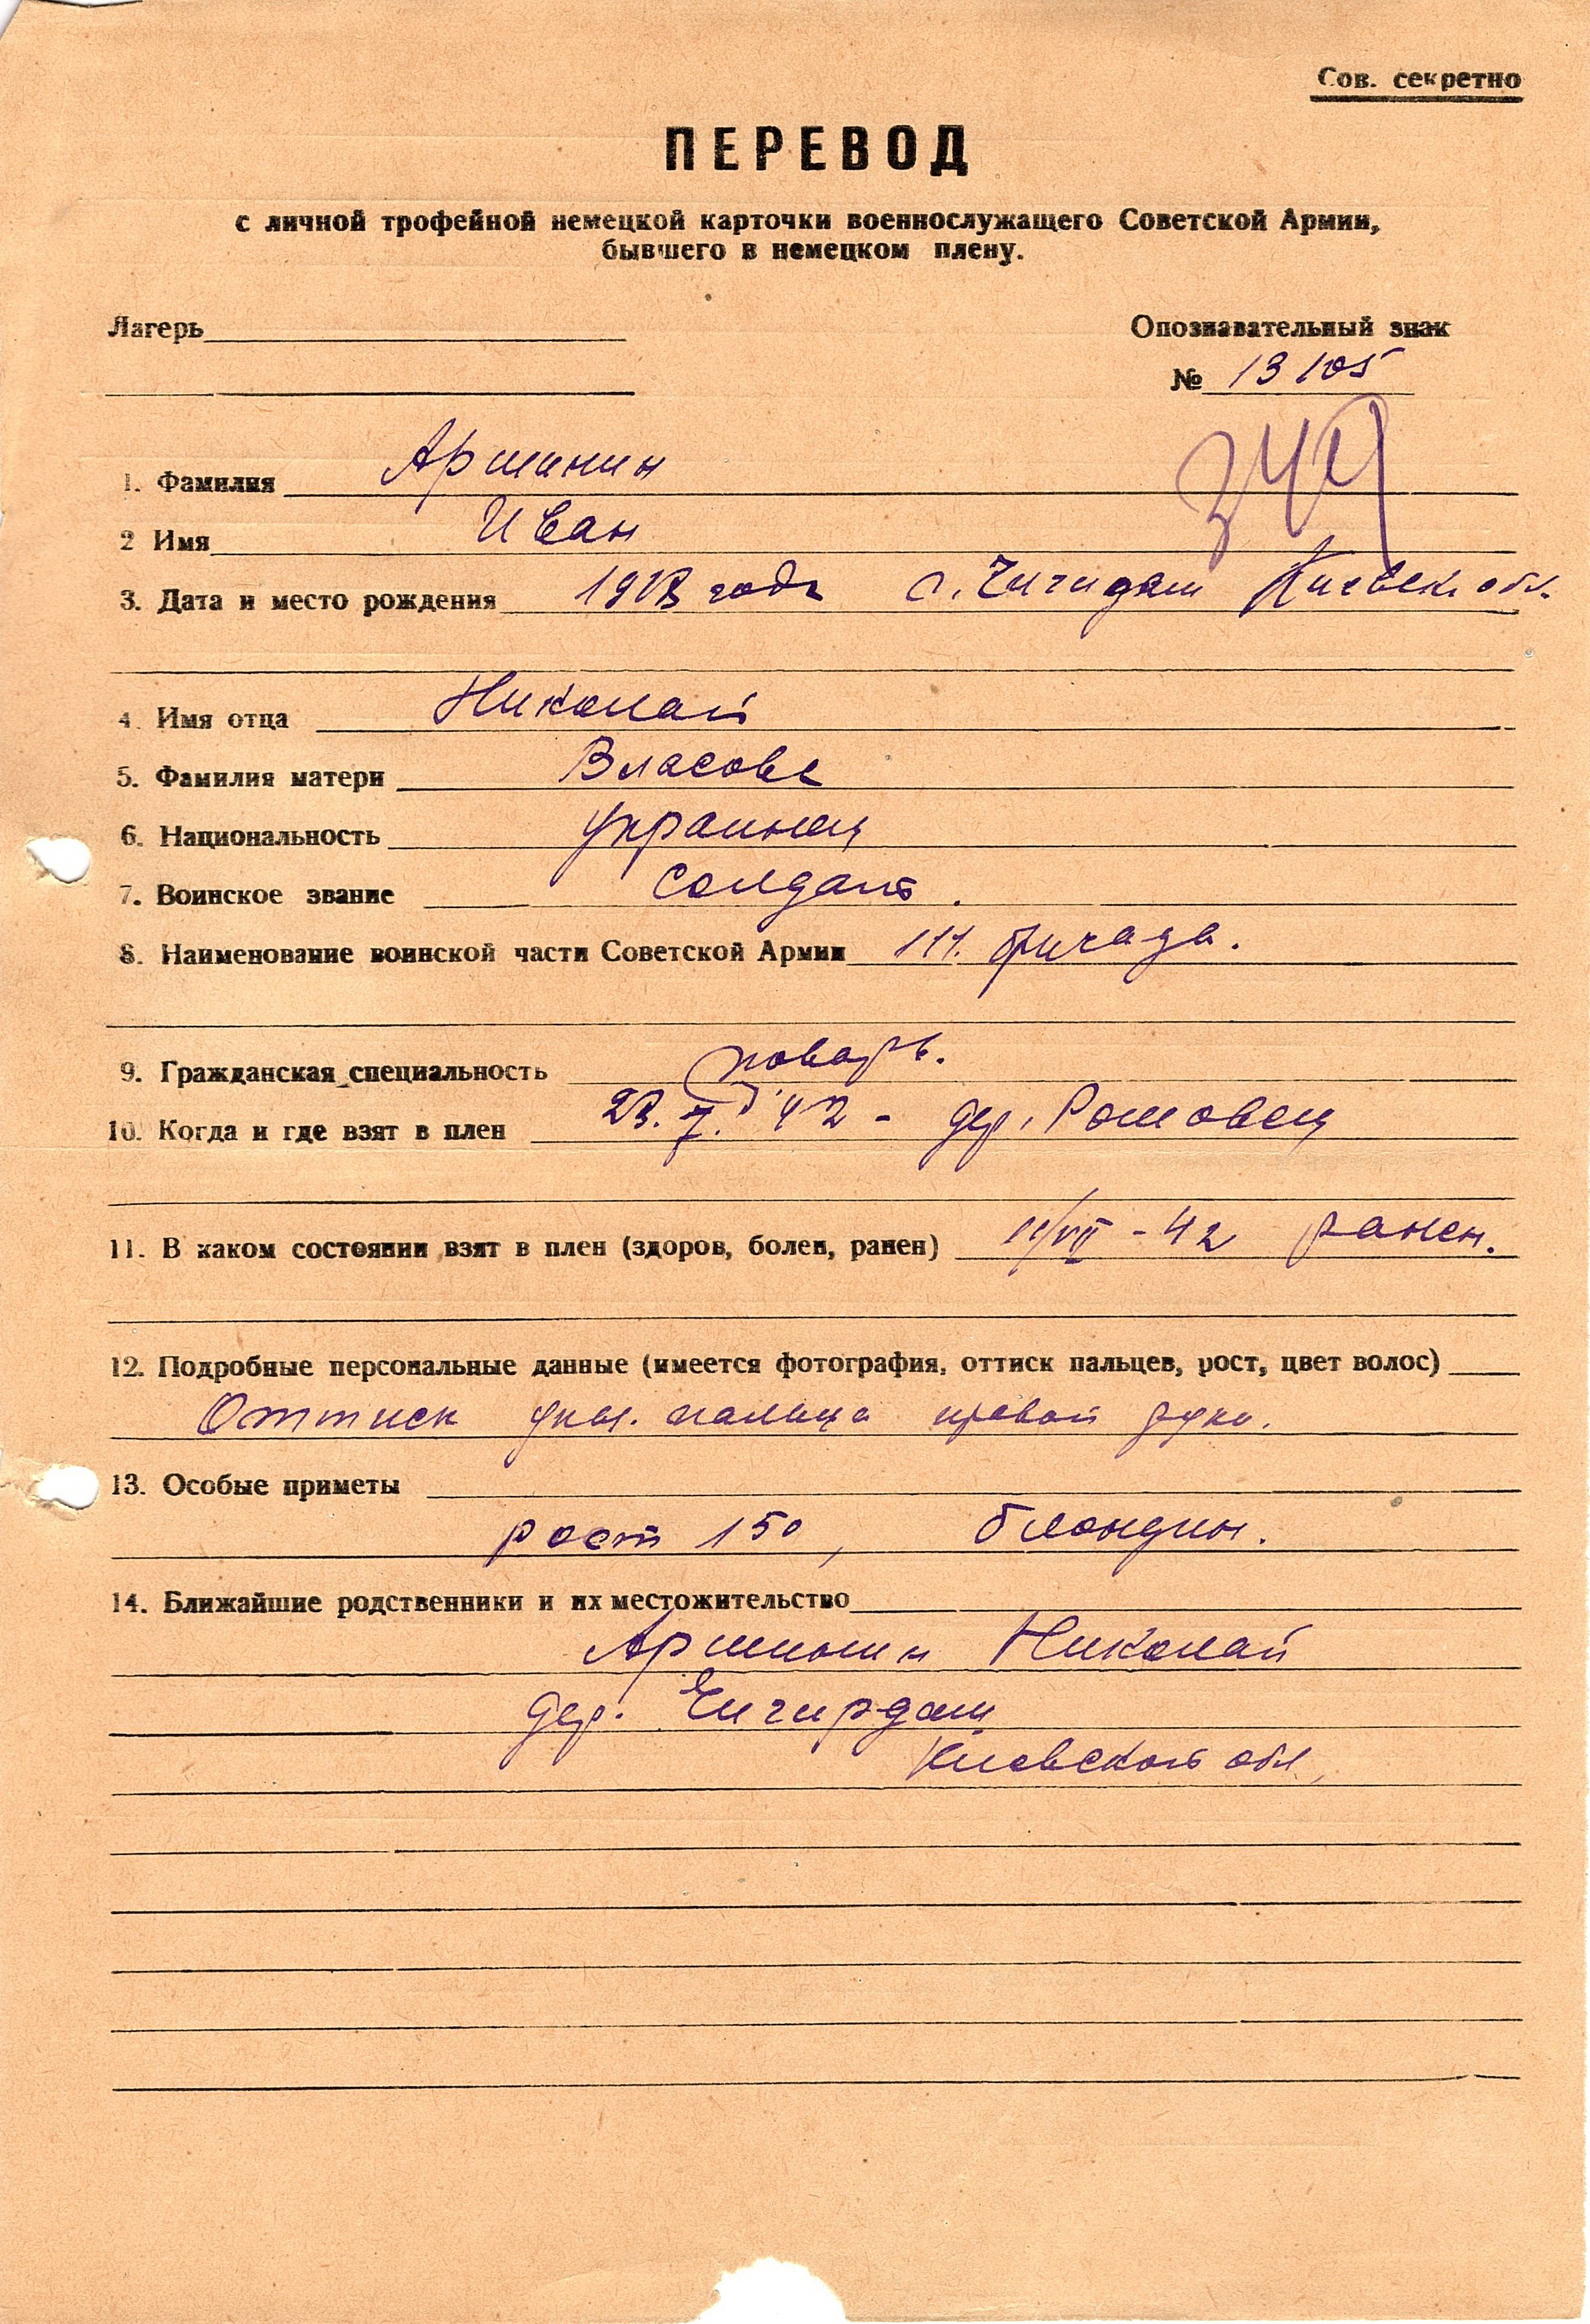 Сов. секретно
ПЕРЕВОД
с личной трофейной немецкой карточки военнослужащего Советской Армии,
бывшего в немецком плену.
Лагерь
Опознавательный знак
№ 13105
1. Фамилия Аршинин
2 Имя Иван
3. Дата и место рождения года Киевск. обл.
4. Имя отца Николай
5. Фамилия матери Власова
6. Национальность украинец
7. Воинское звание Солдат.
8. Наименование воинской части Советской Армии 111. бригада.
9. Гражданская специальность повар.
10. Когда и где взят в плен 23.7.42 - дер.
11. В каком состоянии взят в плен (здоров, болен, ранен) -42 ранен.
12. Подробные персональные данные (имеется фотография, оттиск пальцев, рост, цвет волос)
Оттиск указ. пальца правой руки.
13. Особые приметы
рост 150, блондин.
14. Ближайшие родственники и их местожительство
Аршинин Николай
дер.
Киевской обл.